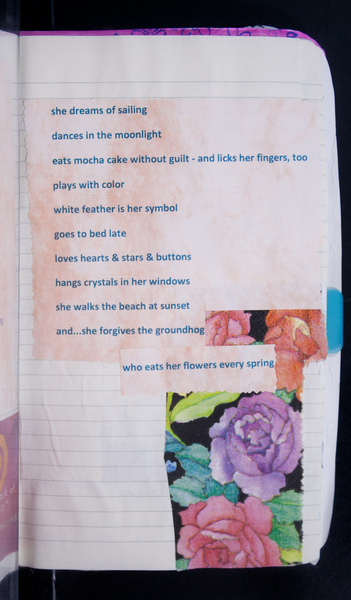 she dreams of sailing
dances in the moonlight
eats mocha cake without guilt - and licks her fingers, too
plays with color
white feather is her symbol
goes to bed late
loves hearts & stars & buttons
hangs crystals in her windows
she walks the beach at sunset
and...she forgives the groundhog
who eats her flowers every spring